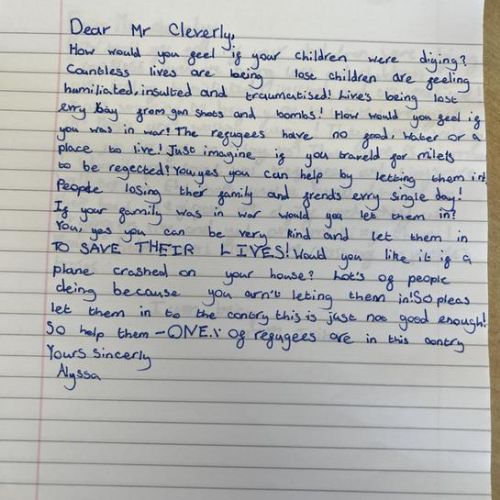 Dear Mr Cleverly,
How would you feel if your children were diying?
Countless lives are being lost children are feeling
humiliated, insulted and traumatised! Live's being lost
evry bay from gun shots and bombs! How would you feel if
you was in war! The refugees have no food, water or a
place to live! Just imagine if you traveld for milets
to be regected? You, yes you can help by letting them in!
People losing ther family and frends evry single day!
If your family was in war would you let them in?
You, yes you can be very kind and let them in
TO SAVE THEIR LIVES! Would you like it if a
plane crashed on your house? Lot's of people
deing because you arn't leting them in! So pleas
let them in to the contry this is just not good enough!
So help them - ONE.% of refugees are in this contry
Yours sincerly
Alyssa